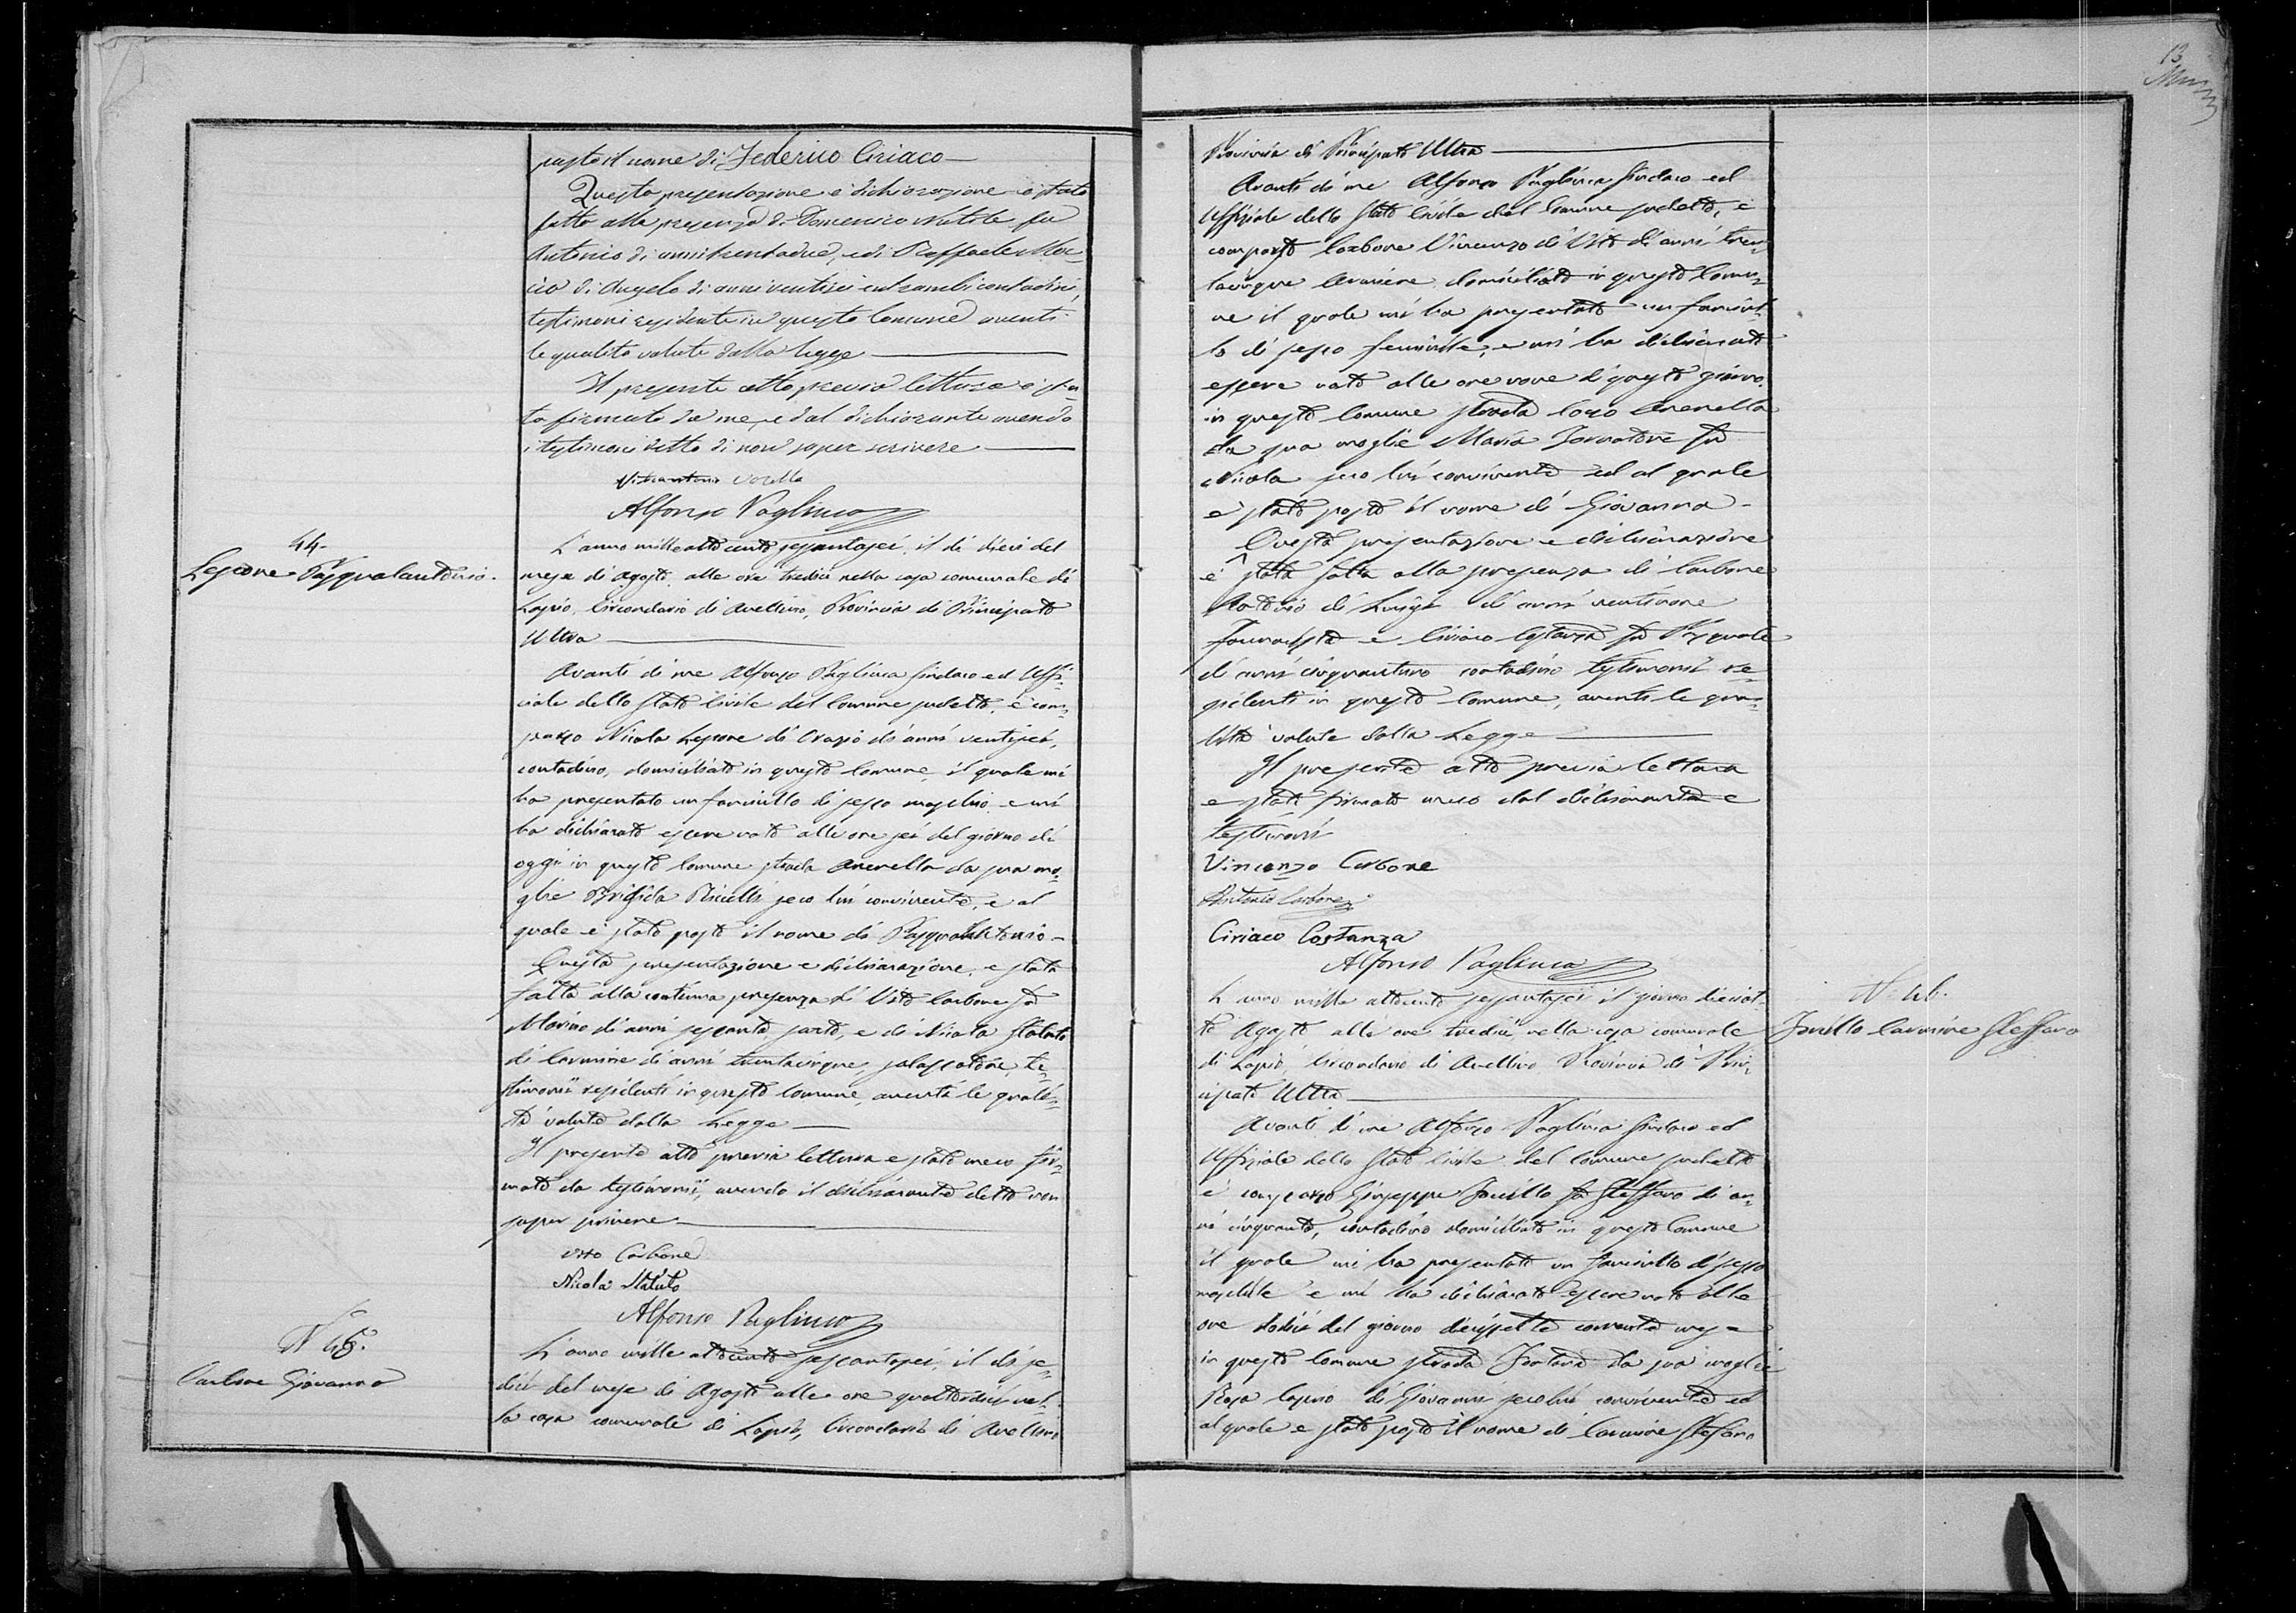 13
posto il nome di Federico Ciriaco
Questa presentazione e dichiarazione è stata
fatta alla presenza di Domenico Natale fu
Antonio di anni trentadue, e di Raffaele
di Angelo di anni ventisei entrambi contadini,
testimoni residenti in questo Comune aventi
le qualità volute dalla legge
Il presente atto previa lettura è sta
to firmato da me, e dal dichiarante avendo
i testimoni detto di non saper scrivere
Alfonso Pagliuca
44.
Lepore Pasqualantonio.
L'anno milleottocento sessantasei, il dì dieci del
mese di Agosto, alle ore tredici nella casa comunale di
Lapio, Circondario di Avellino, Provincia di Principato
Ultra
Avanti di me Alfonso Pagliuca Sindaco ed Uffi=
ciale dello Stato Civile del Comune sudetto, è com=
parso Nicola Lepore di Orazio di anni ventisei,
contadino, domiciliato in questo Comune, il quale mi
ha presentato un fanciullo di sesso maschio e mi
ha dichiarato essere nato alle ore sei del giorno di
oggi in questo Comune strada Arenella da sua mo=
glie Brigida seco lui convivente, e al
quale è stato posto il nome di Pasqualantonio
Questa presentazione e dichiarazione, è stata
fatta alla continua presenza di Vito Carbone fu
Marino di anni sessanta sarto, e di Nicola Statuto
di Carmine di anni trentacinque, te=
stimonii residenti in questo Comune, aventi le quali=
tà volute dalla Legge
Il presente atto previa lettura è stato meco fir=
mato da testimonii, avendo il dichiarante detto non
saper scrivere
Vito Carbone
Nicola Statuto
Alfonso Pagliuca
N 45.
Carbone Giovanna
L'anno mille ottocento sessantasei, il dì se=
dici del mese di Agosto alle ore quattordici nel=
la casa comunale di Lapio, Circondario di Avellino
Provincia di Principato Ultra
Avanti di me Alfonso Pagliuca Sindaco ed
Uffiziale dello Stato Civile del Comune sudetto, è
comparso Carbone Vincenzo di Vito di anni tren=
tacinque domiciliato in questo Comu=
ne il quale mi ha presentato un fanciul=
lo di sesso feminile, e mi ha dichiarato
essere nato alle ore nove di questo giorno
in questo Comune strada loco Arenella
da sua moglie Maria fu
Nicola seco lui convivente ed al quale
è stato posto il nome di Giovanna
Questa presentazione e dichiarazione
è stata fatta alla presenza di Carbone
Antonio di Luigi di anni ventinove
e Ciriaco Costanza fu Pasquale
di anni cinquantuno contadino testimonii re=
sidenti in questo Comune, aventi le qua=
lità volute dalla Legge
Il presente atto previa lettura
è stato firmato meco dal dichiarante e
testimonii
Vincenzo Carbone
Antonio Carbone
Ciriaco Costanza
Alfonso Pagliuca
N. 46.
Iarillo Carmine Steffano
L'anno mille ottocento sessantasei il giorno diciot=
to Agosto alle ore tredici nella casa comunale
di Lapio, Circondario di Avellino Provincia di Prin=
cipato Ultra
Avanti di me Alfonso Pagliuca Sindaco ed
Uffiziale dello Stato Civile del Comune sudetto
è comparso Giuseppe Iarillo fu Steffano di an=
ni cinquanta, contadino domiciliato in questo Comune
il quale mi ha presentato un fanciullo di sesso
maschile e mi ha dichiarato essere nato alle
ore dodici del giorno diciassette corrente mese
in questo Comune strada Fontana da sua moglie
Rosa di Giovanni seco lui convivente ed
al quale è stato posto il nome di Carmine Stefano